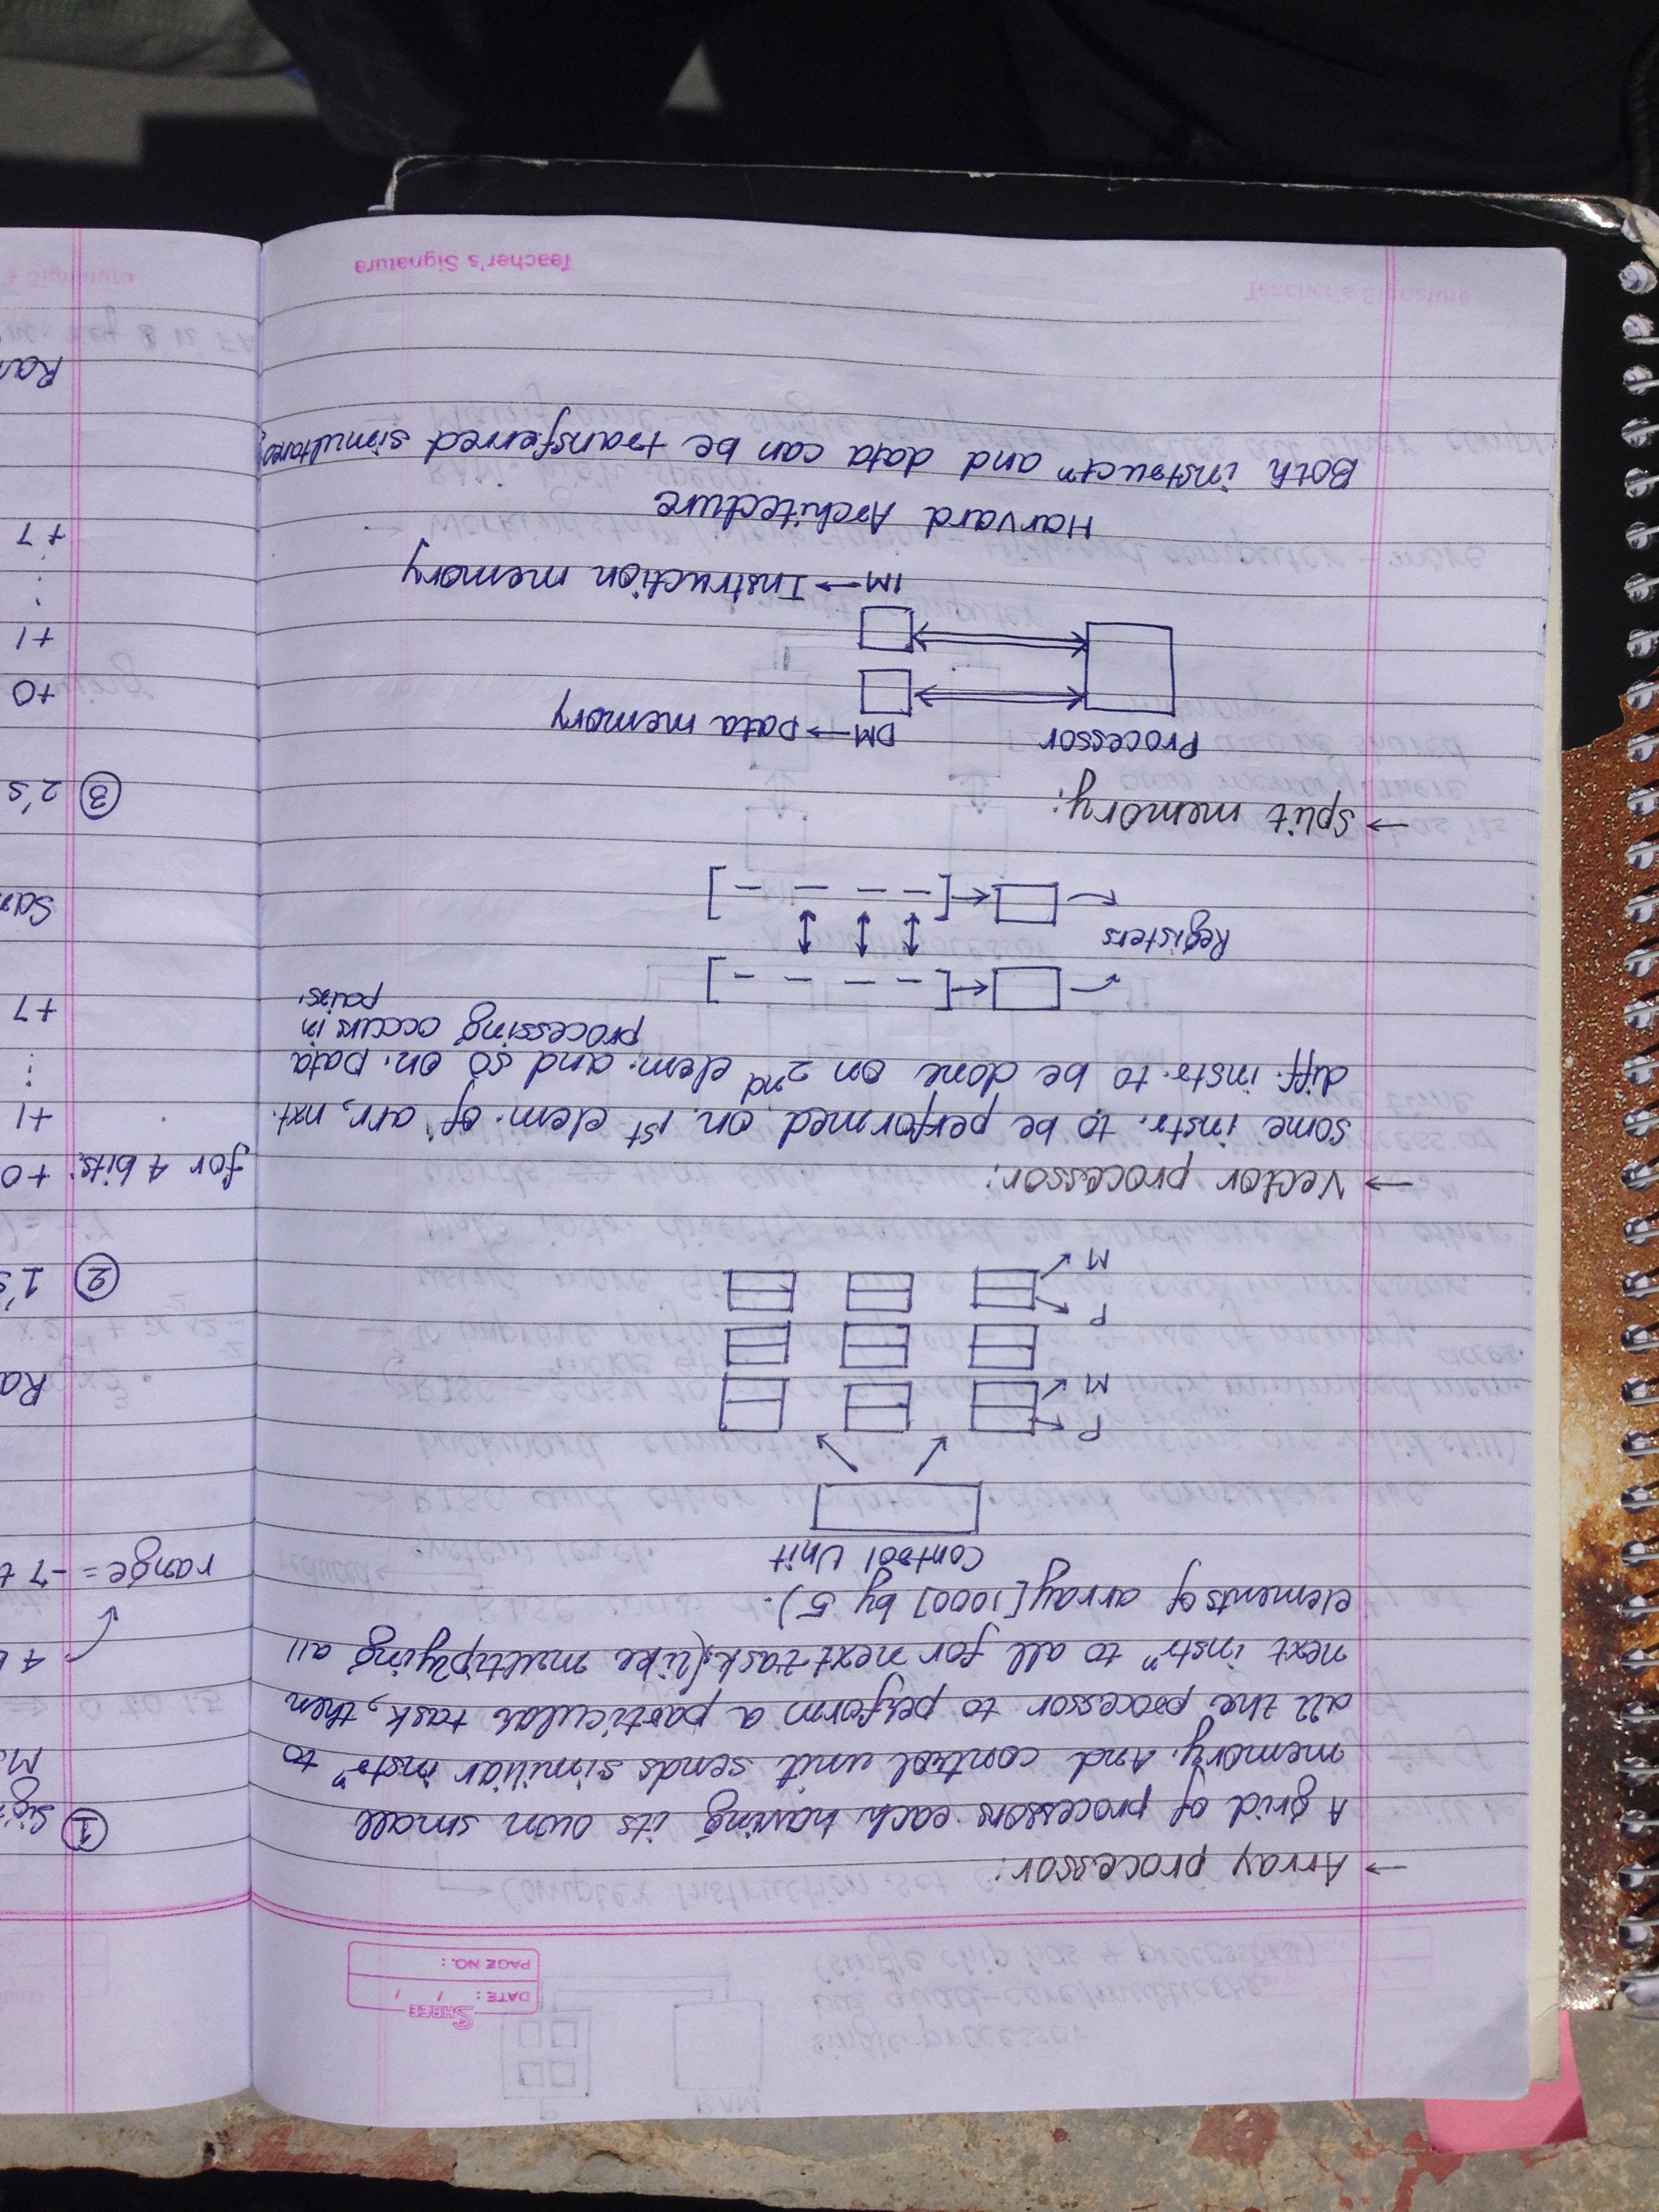 SHREE
DATE: / /
PAGE NO.:
→ Array processor:
A grid of processors each having its own small
memory. And control unit sends similiar instrⁿ to
all the processor to perform a particular task, then
next instrⁿ to all for next task, (like multiplying all
elements of array [1000] by 5).
Control Unit
P
M
P
M
→ Vector processor:
some instr. to be performed on 1st elem. of arr, nxt.
diff. instr. to be done on 2nd elem. and so on. Data
processing occurs in
pairs.
Registers
→ Split memory:
Processor
DM → Data memory
IM → Instruction memory
Harvard Architecture
Both instructⁿ and data can be transferred
Teacher's Signature
①
4
range = -7
②
1's
for 4 bits: +0
+1
+7
③ 2's
+0
+1
+7